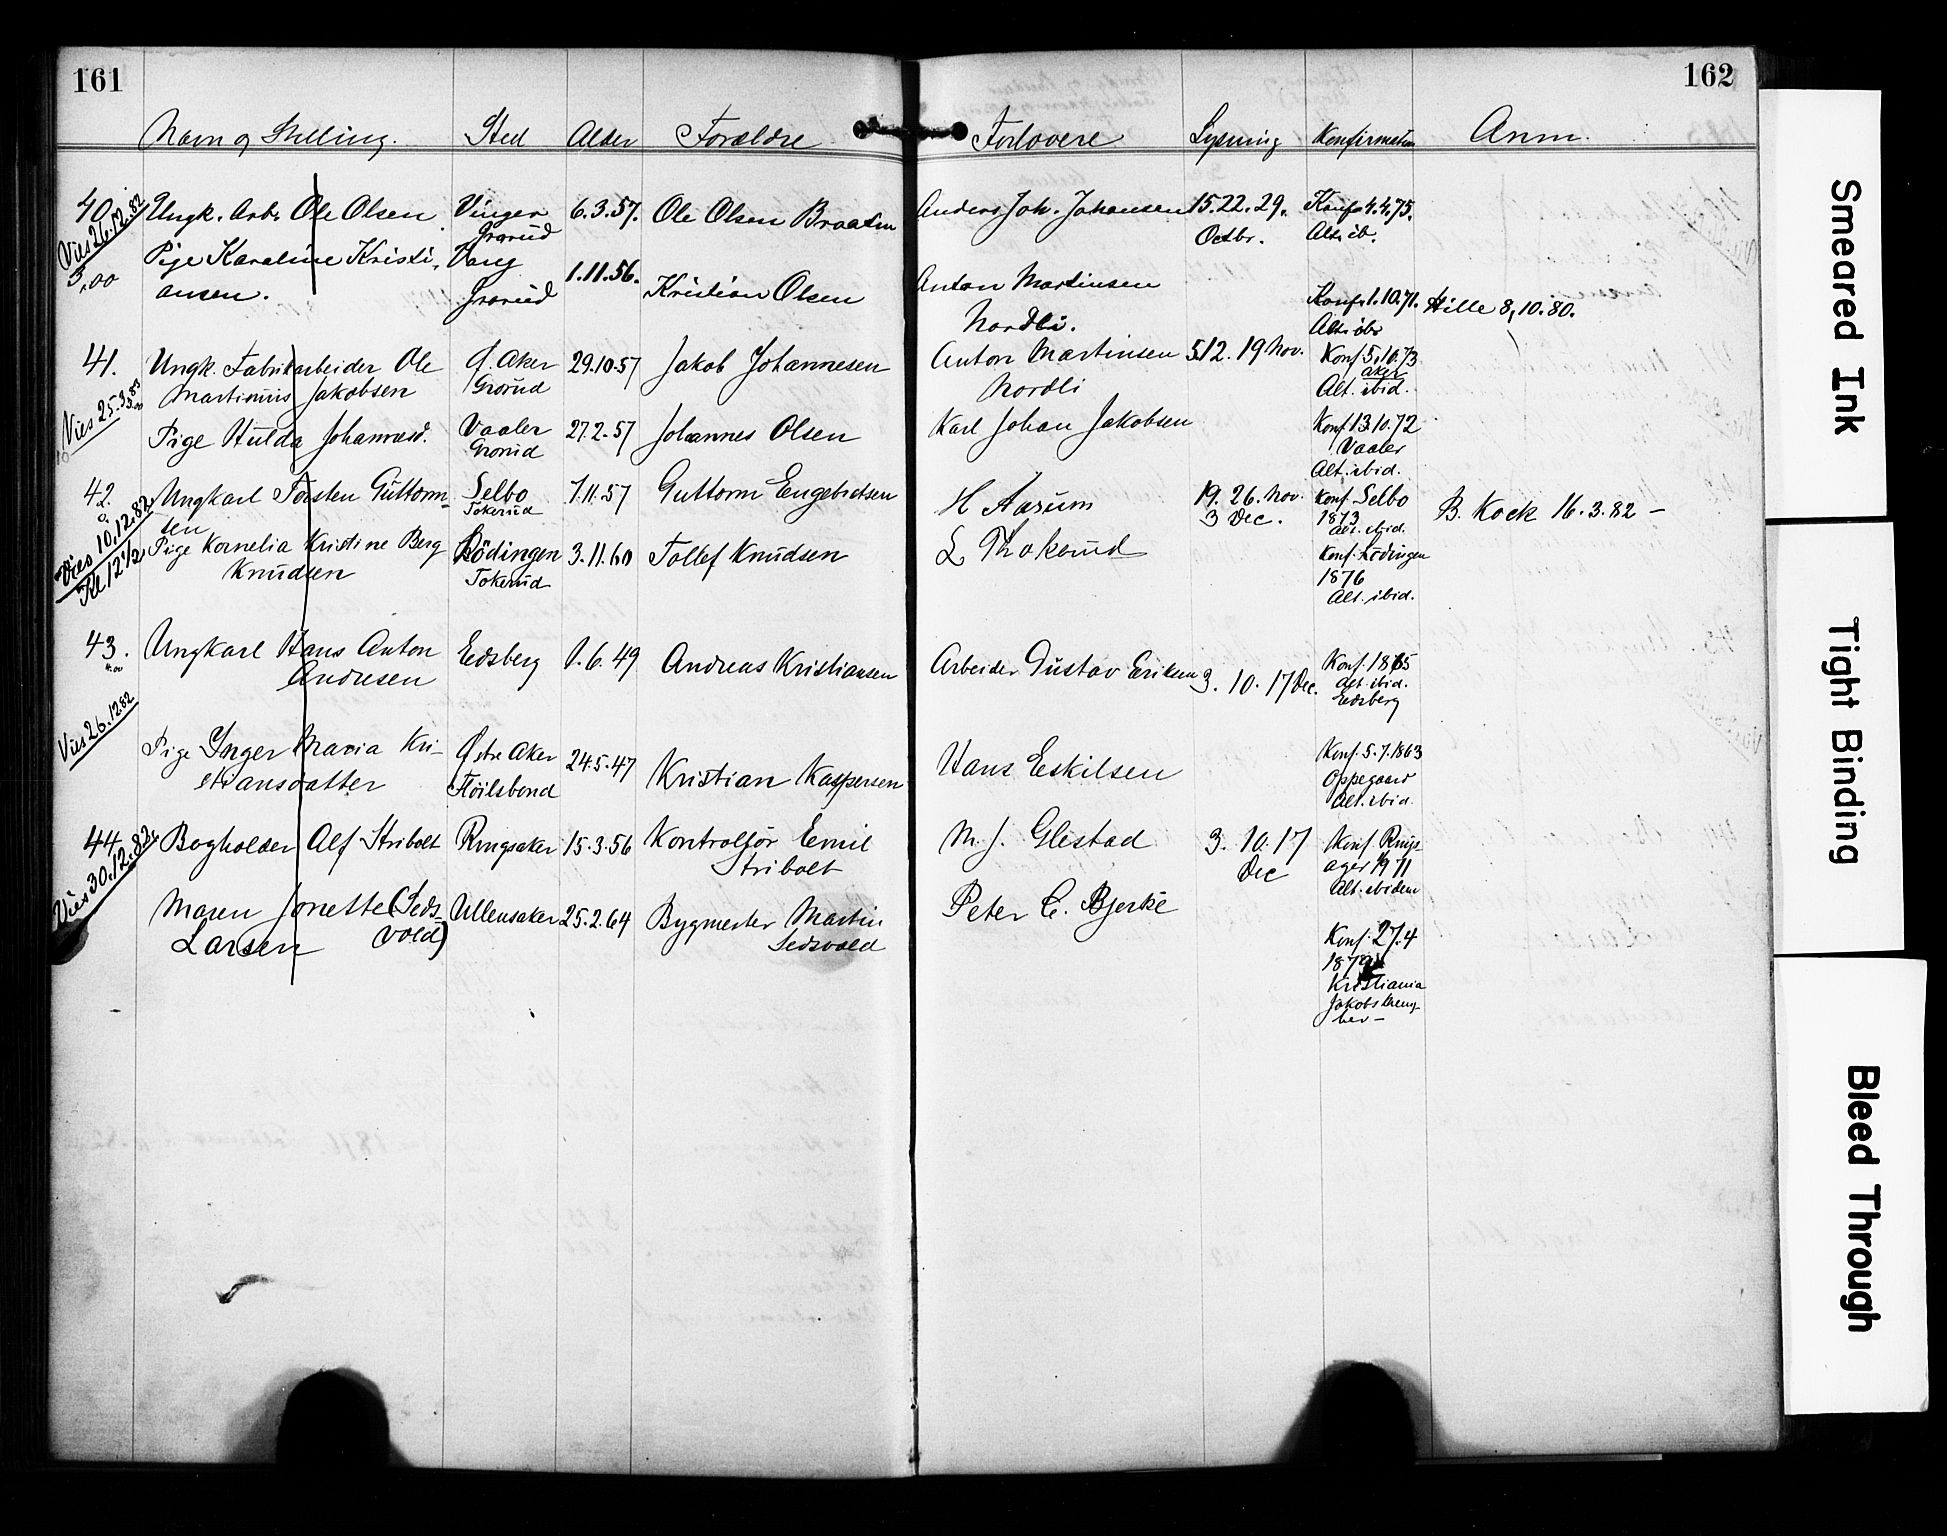 161
162
Navn og Stilling. Sted Alder Forældre Forlovere Lysning Konfirmation Anm.
40. Ungk. Arb. Ole Olsen Vinger 6.3.57. Ole Olsen Braaten Anders Joh. Johansen 15. 22. 29. Konf. 4.4.75.
Vies 26.12.82 Grorud Octbr. Alt. ib.
3,00 Pige Karoline Kristi- Vang 1.11.56. Kristian Olsen Anton Martinsen Konf. 1.10.71. Hille 8,10.80.
ansen. Grorud Nordli. Alt. ib.
41. Ungk. Fabrikarbeider Ole Ø. Aker 29.10.57 Jakob Johannesen Anton Martinsen 5. 12. 19 Nov. Konf. 5.10.73
Martinius Jakobsen Grorud Nordli Aker
Alt. ibid.
Vies 25.3.83 Pige Hulda Johannesd. Vaaler 27.2.57 Johannes Olsen Karl Johan Jakobsen Konf. 13.10.72
Grorud Vaaler
Alt. ibid.
42. Ungkarl Torsten Guttorm- Selbo 7.11.57 Guttorm Engebretsen H Aarum 19. 26. Nov. Konf. Selbo B. Kock 16.3.82 –
sen Tokerud 3 Dec. 1873
Alt. ibid.
Vies 10,12.82. Pige Kornelia Kristine Berg Lödingen 3.11.60 Tollef Knudsen L Thokerud Konf. Lödingen
Kl 12 1/2 Knudsen Tokerud 1876
Alt. ibid.
43. Ungkarl Hans Anton Eidsberg 1.6.49 Andreas Kristiansen Arbeider Gustav Eriksen 3. 10. 17 Dec. Konf. 1865
4.00 Andresen Alt. ibid.
Eidsberg
Vies 26.12 82 Pige Inger Maria Kri- Østre Aker 24.5.47 Kristian Kaspersen Hans Eskilsen Konf. 5.7.1863
stiansdatter Oppegaard
Alt. ibid.
44. Bogholder Alf Stribolt Ringsaker 15.3.56 Kontrollør Emil M. J. Glestad 3. 10. 17 Konf. Rings-
Vies 30.12.82. Stribolt Dec ager 1871
Alt. ibidem
Maren Jonette (Seds- Ullensaker 25.2.64 Bygmester Martin Peter C. Bjerke Konf. 27.4
Larsen vold) Sedsvold 1879
Kristiania
Jakobs
Smeared Ink
Tight Binding
Bleed Through